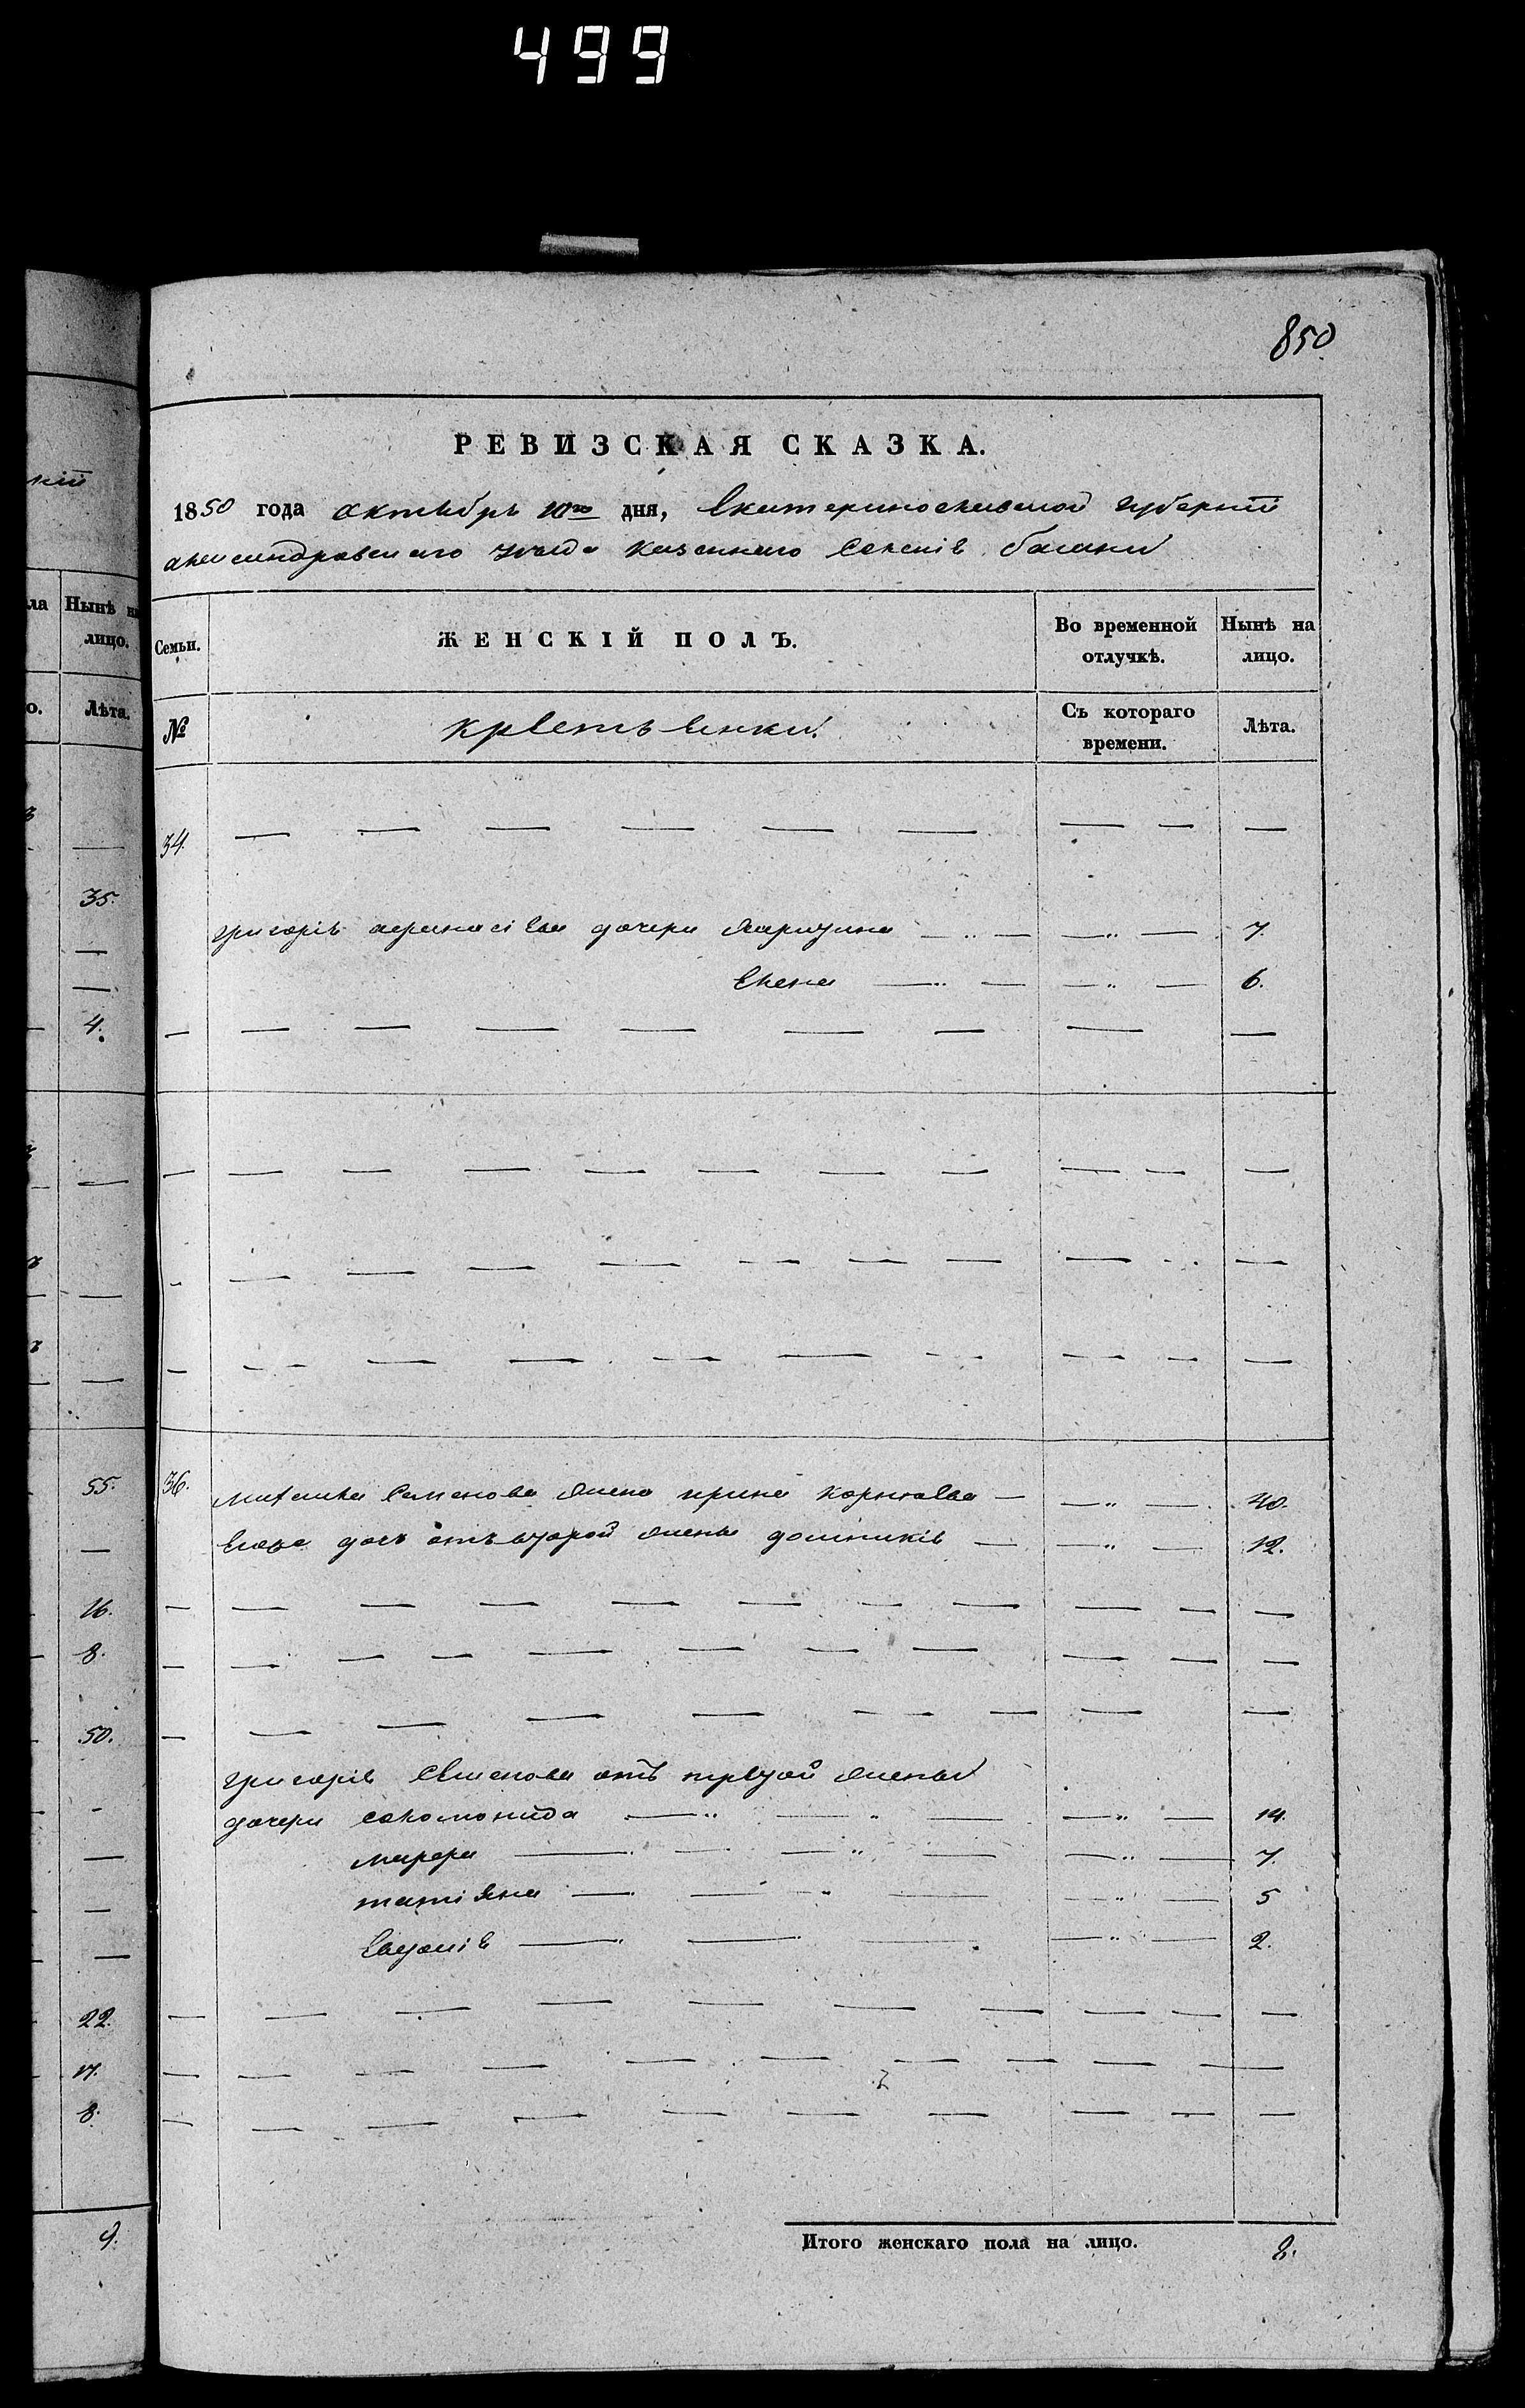 499
850
РЕВИЗСКАЯ СКАЗКА.
1850 года октябръ 10го дня, Екатеринославской губернiи
александровскаго уезда казеннаго Селенiя балки
Семьи. ЖЕНСКІЙ ПОЛЪ. Во временной отлучкѣ. Нынѣ на лицо.
№ крестьянки. Съ котораго времени. Лѣта.
34.
григорiя афанасiева дочери 7.
Елена 6.
36. Семенова жена ирина корнѣева 40.
Его дочь отъ второй жены 12.
григорiя Семенова отъ первой жены
дочери соломонида 14.
марфа 7.
татiяна 5
Евдокiя 2.
Итого женскаго пола на лицо. 8.
кій
ла Нынѣ на лицо.
о. Лѣта.
35.
4.
55.
16.
8.
50.
22.
17.
8.
9.